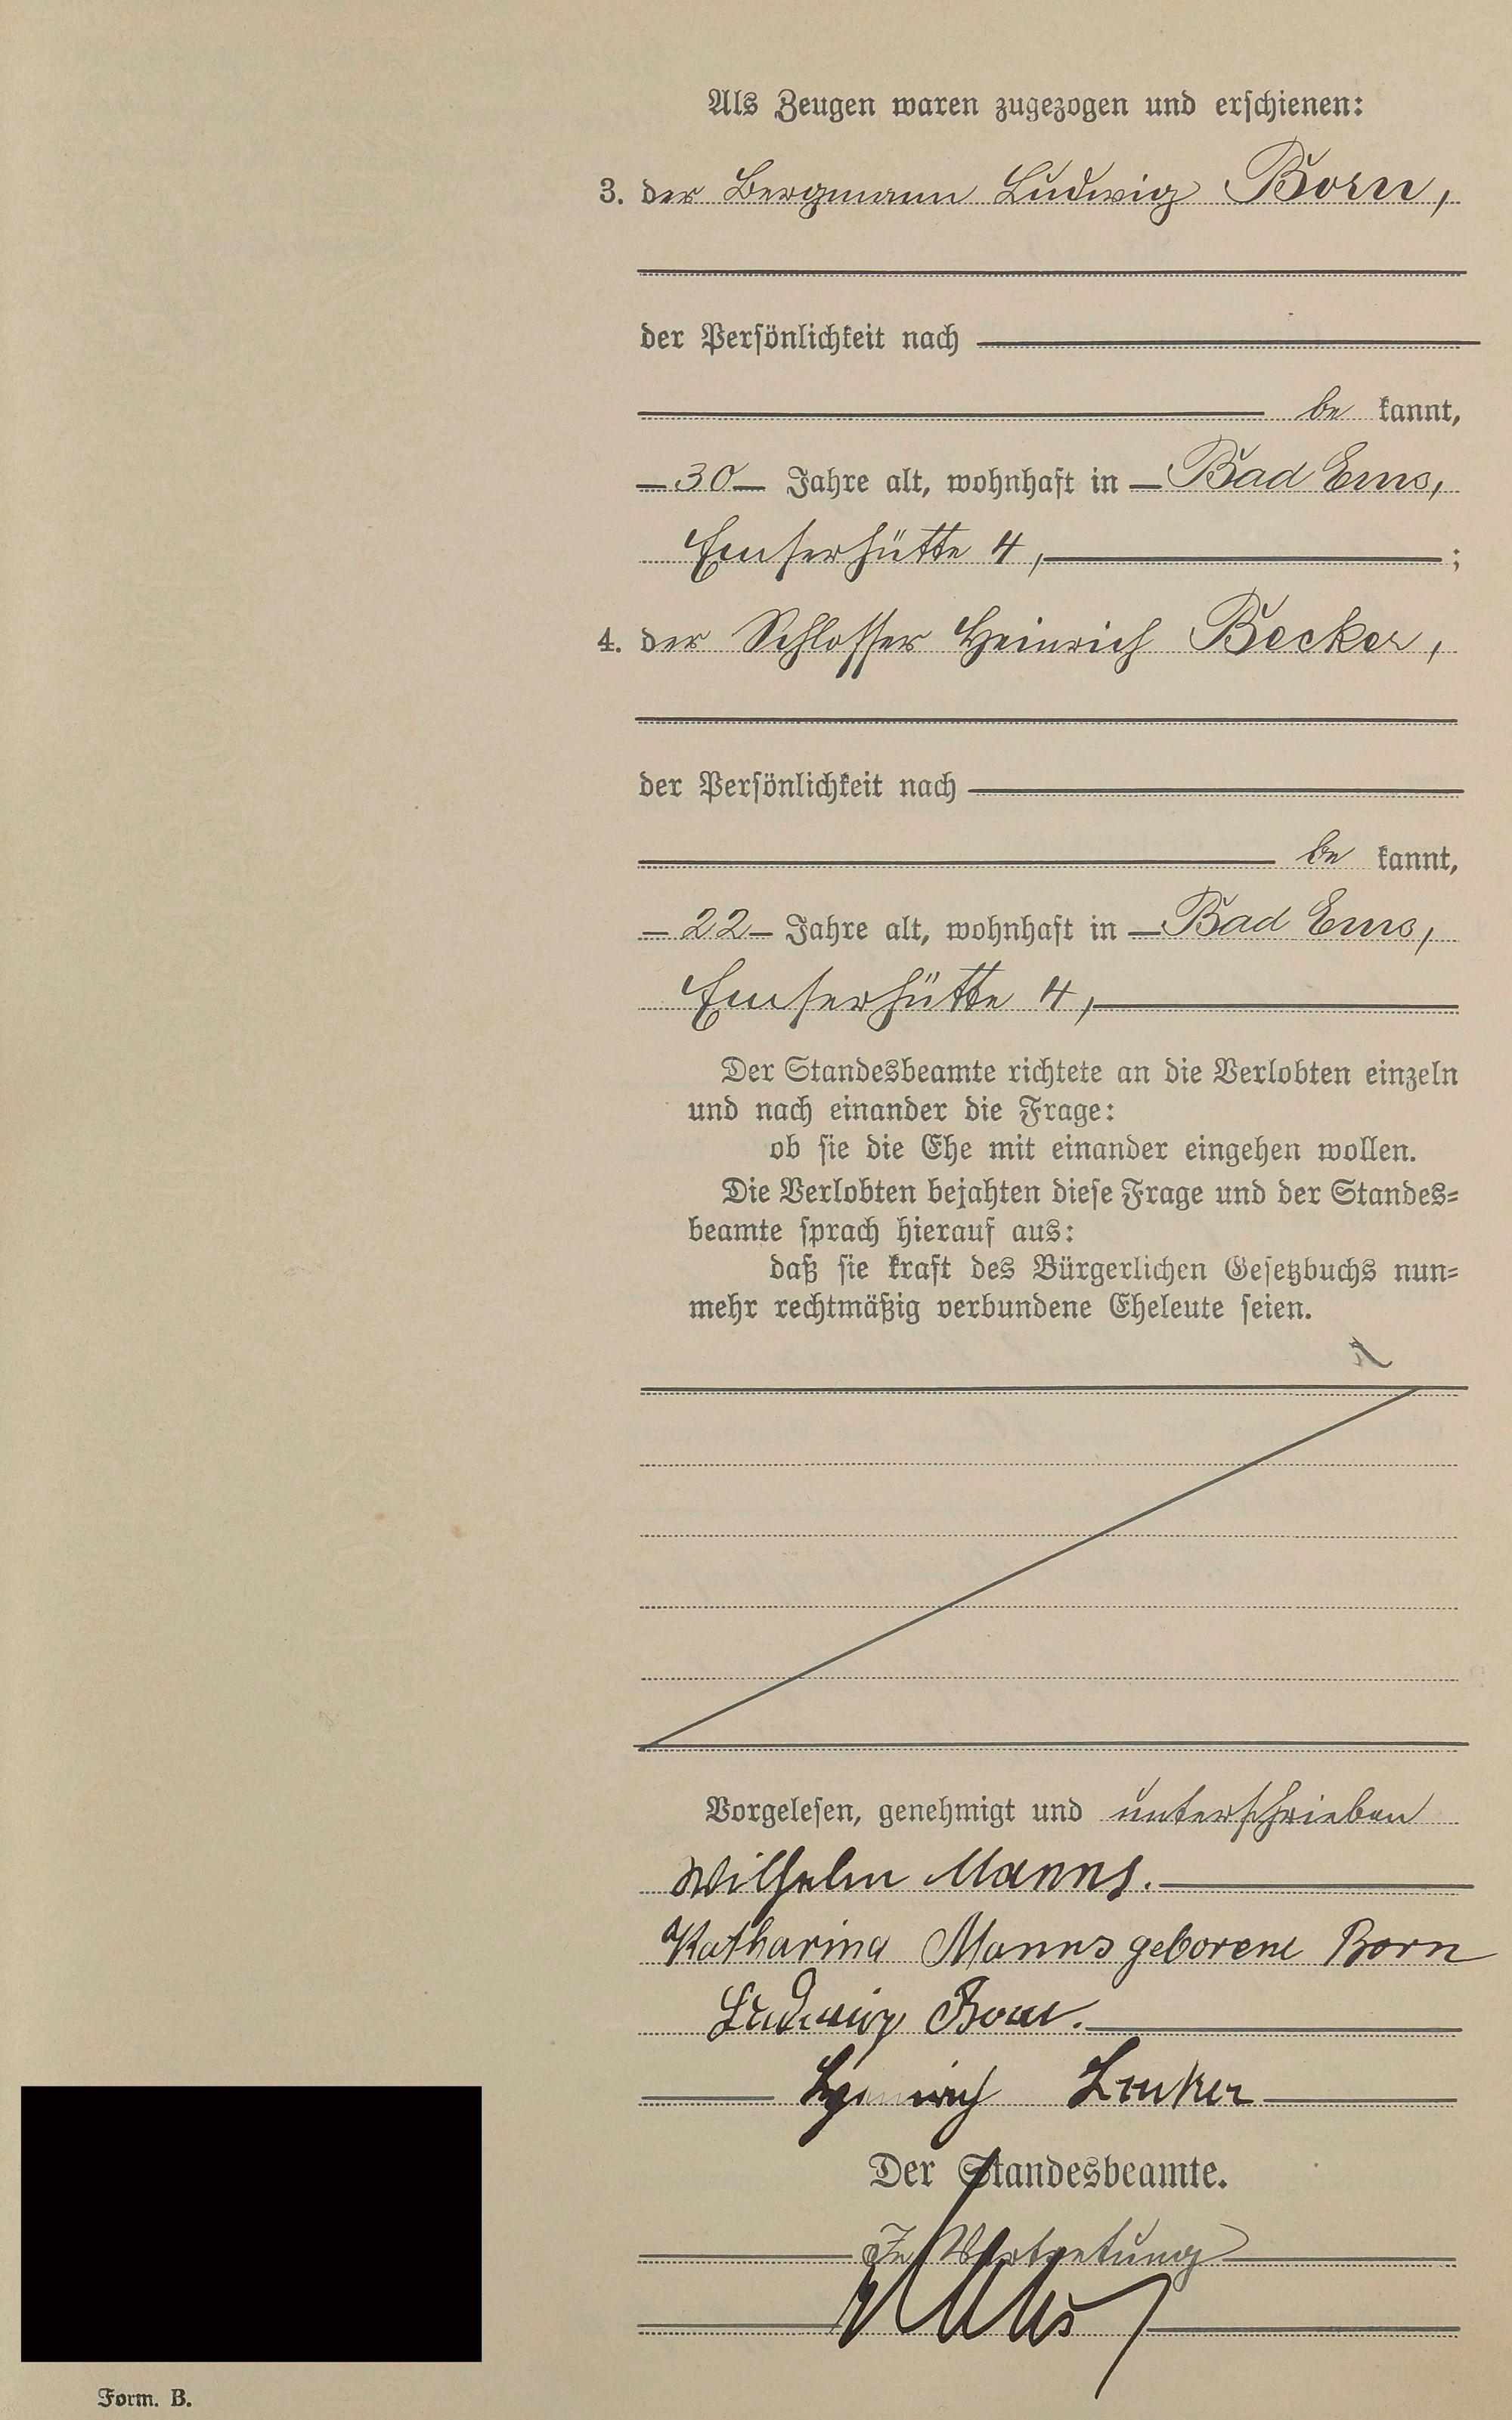 Als Zeugen waren zugezogen und erschienen:
3. der Bergmann Ludwig Born,
der Persönlichkeit nach
be kannt,
30 Jahre alt, wohnhaft in Bad Ems,
Emserhütte 4, ;
4. der Schlosser Heinrich Becker,
der Persönlichkeit nach
be kannt,
22 Jahre alt, wohnhaft in Bad Ems,
Emserhütte 4,
Der Standesbeamte richtete an die Verlobten einzeln
und nach einander die Frage:
ob sie die Ehe mit einander eingehen wollen.
Die Verlobten bejahten diese Frage und der Standes-
beamte sprach hierauf aus:
daß sie kraft des Bürgerlichen Gesetzbuchs nun-
mehr rechtmäßig verbundene Eheleute seien.
Vorgelesen, genehmigt und unterschrieben
Wilhelm Manns.
Katharina Manns geborene Born
Ludwig Born.
Heinrich
Der Standesbeamte.
In Vertretung
Form. B.